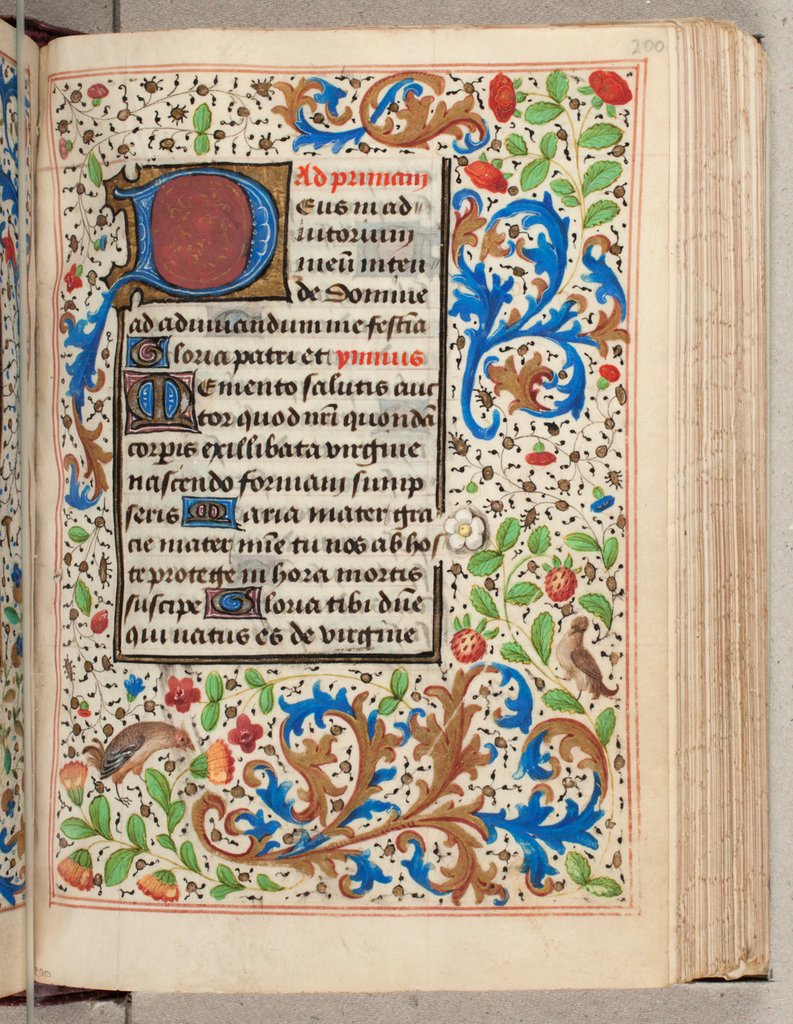 200
Ad primam
Deus in ad
iutorium
meū inten
de Domine
ad adiuuandum me festīa
Gloria patri et ymnus
Memento salutis auc
tor quod nr̄i quondā
corpis ex illibata virgine
nascendo formam sump
seris Maria mater gra
cie mater mīe tu nos ab hos
te protege in hora mortis
suscipe Gloria tibi dn̄e
qui natus es de virgine
200